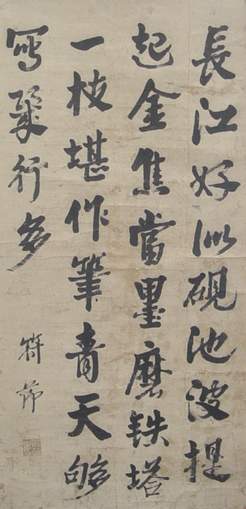 長江好似硯池波提
起金焦當墨磨鉄塔
一枝堪作筆青天够
寫幾行多
符節